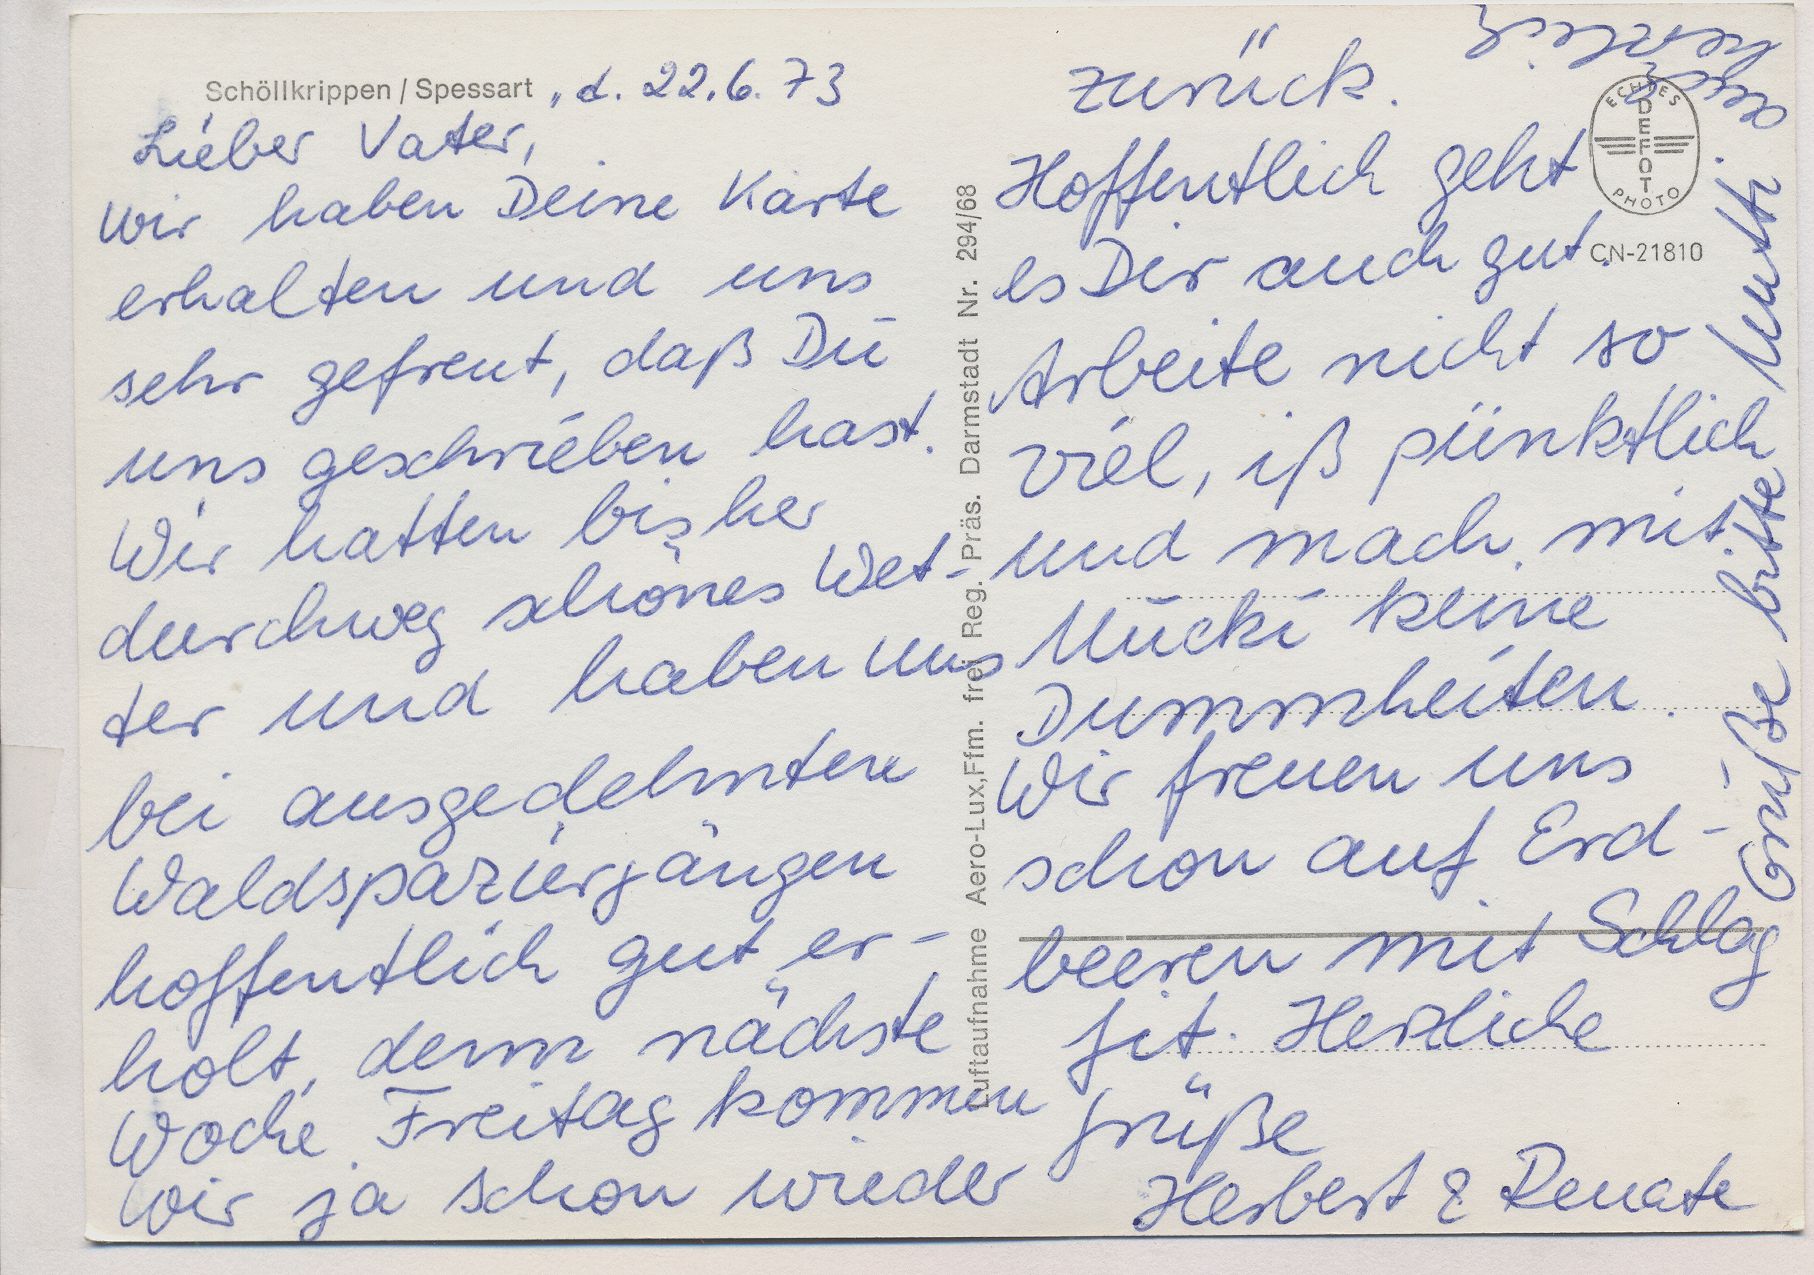 Schöllkrippen / Spessart , d. 22.6.73
Lieber Vater,
wir haben Deine Karte
erhalten und uns
sehr gefreut, daß Du
uns geschrieben hast.
Wir hatten bisher
durchweg schönes Wet-
ter und haben uns
bei ausgedehnten
Waldspaziergängen
hoffentlich gut er-
holt, denn nächste
Woche Freitag kommen
wir ja schon wieder
Luftaufnahme Aero-Lux,Ffm. frei Reg. Präs. Darmstadt Nr. 294/68
zurück.
Hoffentlich geht
es Dir auch gut.
Arbeite nicht so
viel, iß pünktlich
und mach mit
Mucki keine
Dummheiten.
Wir freuen uns
schon auf Erd-
beeren mit Schlag
fit. Herzliche
Grüße
Herbert & Renate
Grüße bitte Mutti
herzlich
ECHTES
DEFOT
PHOTO
CN-21810